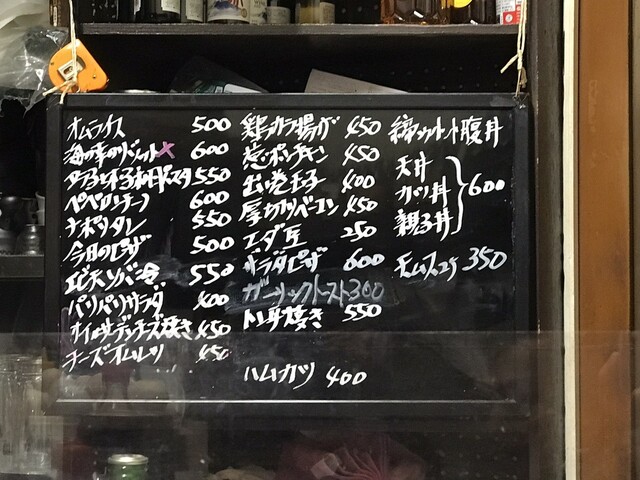 オムライス 500
海の幸のリゾット× 600
タラコと玉子の和風パスタ 550
ペペロンチーノ 600
ナポリタン 550
今日のピザ 500
エビ天ソバ 550
パリパリサラダ 400
オイルサーディンチーズ焼き 450
チーズオムレツ 450
鶏カラ揚げ 450
チャン 450
出し巻玉子 400
厚切りベーコン 450
エダ豆 250
サラダピザ 600
ガーリックトースト 300
トン平焼き 550
ハムカツ 400
腹丼
天丼
カツ丼
親子丼
600
350